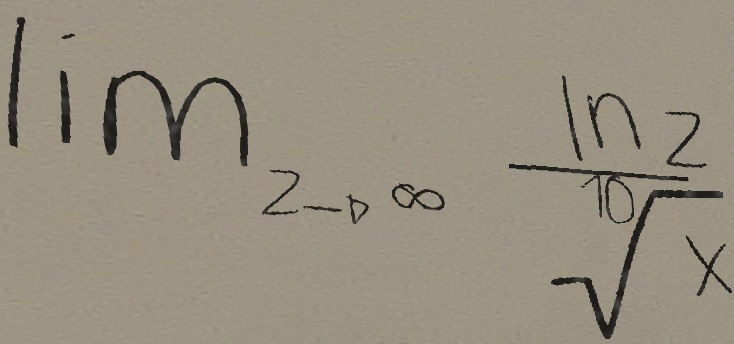 lim z→∞ ln z / 10√x